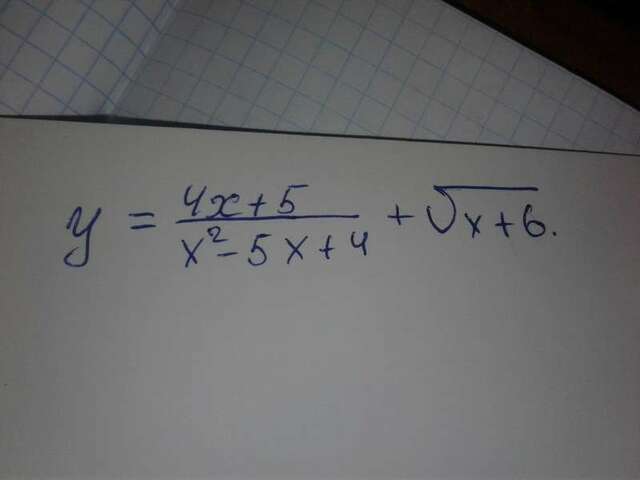 y = \frac{4x+5}{x^2-5x+4} + \sqrt{x+6}.